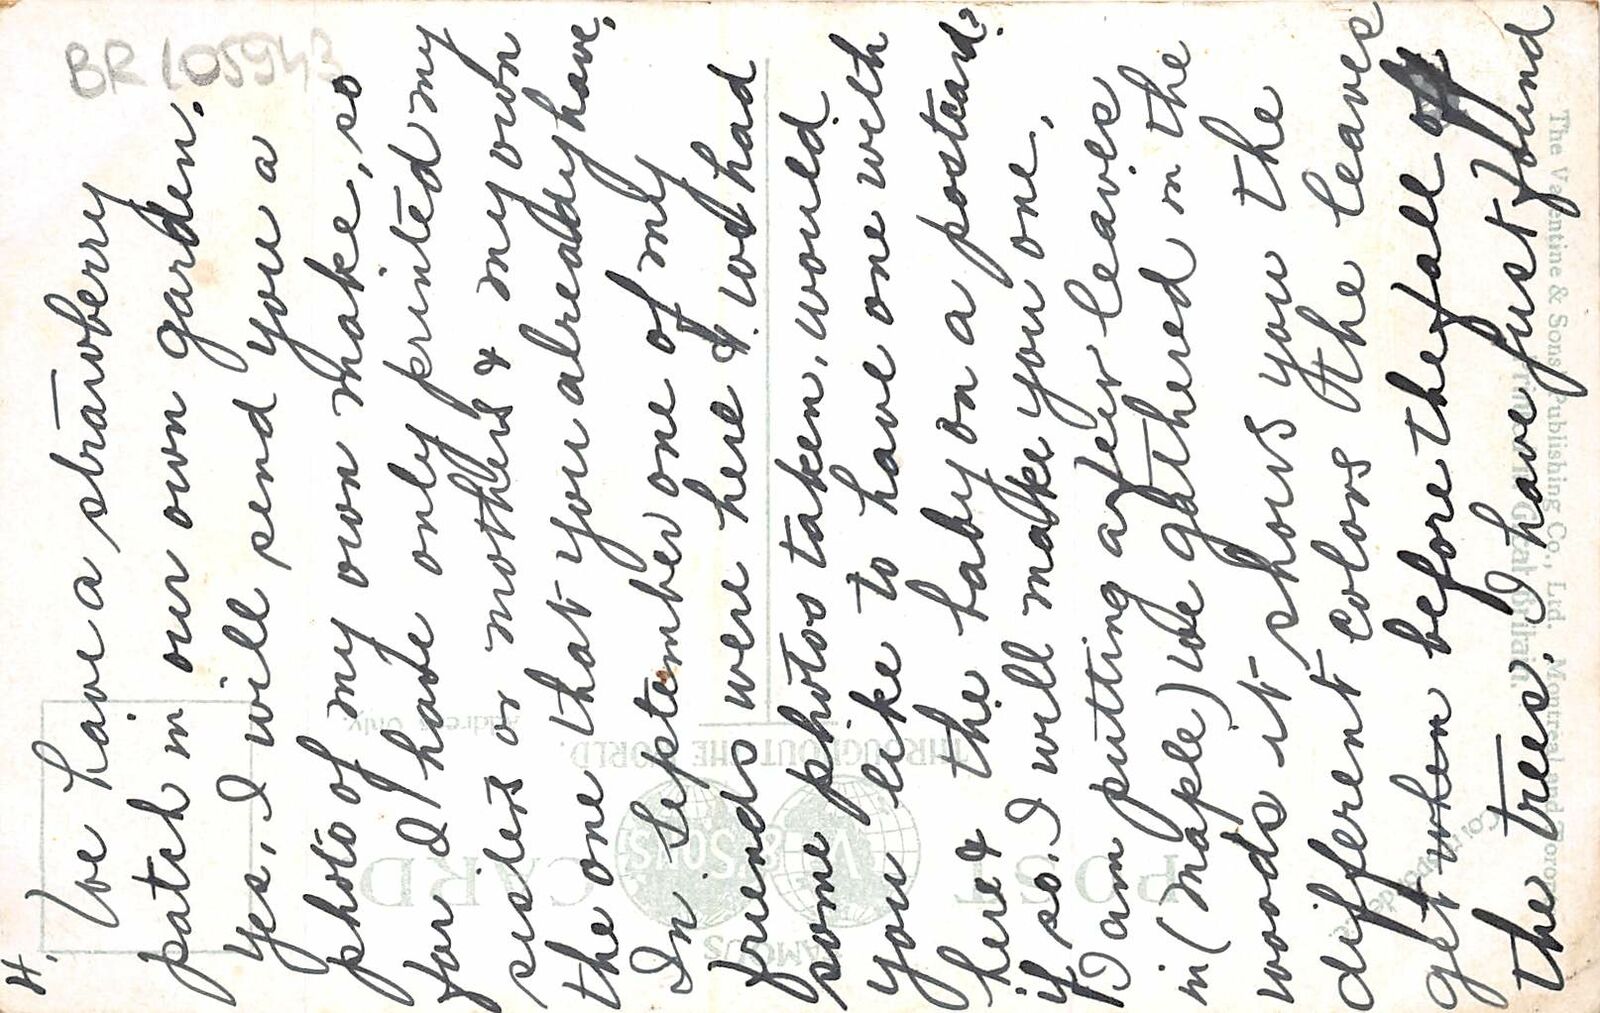 4.
We have a strawberry
patch in our own garden.
Yes, I will send you a
photo of my own make, so
far I have only printed my
sisters or mothers & my own
the one that you already have,
In September one of my
friends were here & we had
some photos taken, would
you like to have one with
here & the baby on a postcard?
if so, I will make you one,
I am putting a few leaves
in (maple) we gathered in the
woods it shows you the
different colors the leaves
get when before they fall off
the trees. I have just found
BR 105943
The Valentine & Sons Publishing Co., Ltd. Montreal and Toronto
Great Britain.
FAMOUS
THROUGHOUT THE WORLD.
V. & SONS
POST CARD
Address Only.